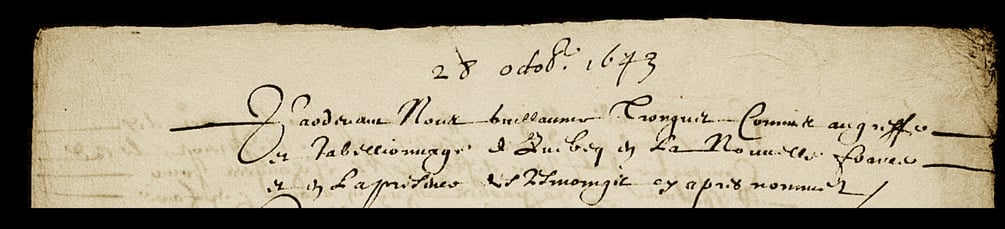 28 octob.e 1643
Pardevant Nous Guillaume Tronquet Commis au greffe
et Tabellionnage de Quebeq en La Nouvelle france
et en La presence des Tesmoings cy apres nommez /